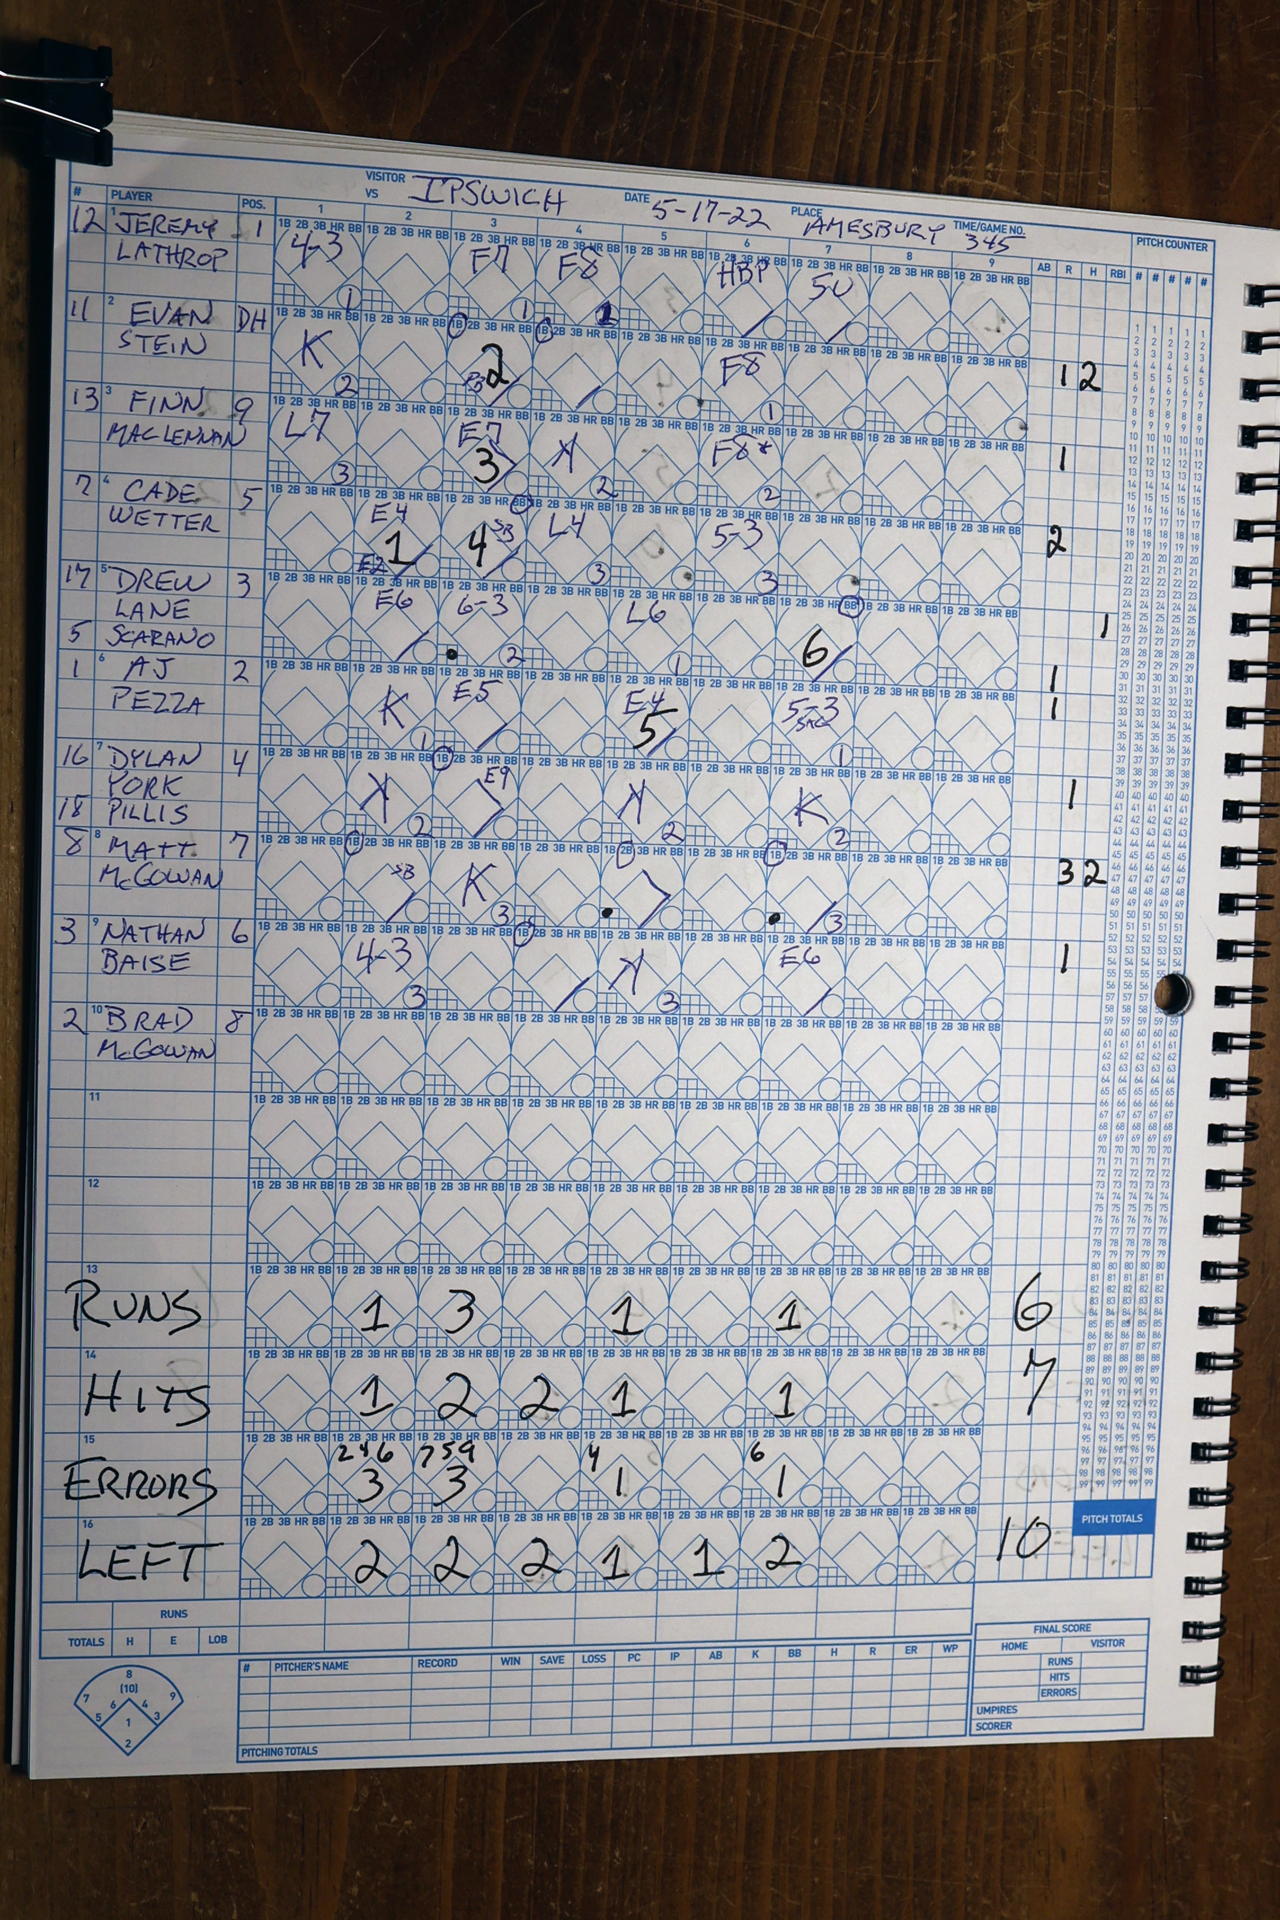 VISITOR
VS IPSWICH DATE 5-17-22 PLACE AMESBURY TIME/GAME NO. 345
# PLAYER POS. 1 2 3 4 5 6 7 8 9 AB R H RBI PITCH COUNTER
12 1 JEREMY 1 4-3 F7 F8 HBP 5U
LATHROP 1 1 1
11 2 EVAN DH K 2 F8 1 2
STEIN 2 PB 1
13 3 FINN 9 L7 E7 K F8* 1
MACLENNAN 3 3 2 2
7 4 CADE 5 E4 SB L4 5-3 2
WETTER E2 1 4 3 3
17 5 DREW 3 E6 6-3 L6 6 1
LANE 2 1
5 SCARANO
1 6 AJ 2 K E5 E4 5-3 1
PEZZA 1 5 SAC 1 1
16 7 DYLAN 4 K E9 K K 1
YORK 2 2 2
18 PILLIS
8 8 MATT 7 SB K 3 2
McGOWAN 3 3
3 9 NATHAN 6 4-3 K E6 1
BAISE 3 3
2 10 BRAD 8
McGOWAN
11
12
13
RUNS 1 3 1 1 6
14
HITS 1 2 2 1 1 7
15 2 4 6 7 5 9 4 6
ERRORS 3 3 1 1
16
LEFT 2 2 2 1 1 2 10
PITCH TOTALS
RUNS
TOTALS H E LOB
# PITCHER'S NAME RECORD WIN SAVE LOSS PC IP AB K BB H R ER WP
PITCHING TOTALS
FINAL SCORE
HOME VISITOR
RUNS
HITS
ERRORS
UMPIRES
SCORER
8
(10)
7 6 4 9
5 1 3
2